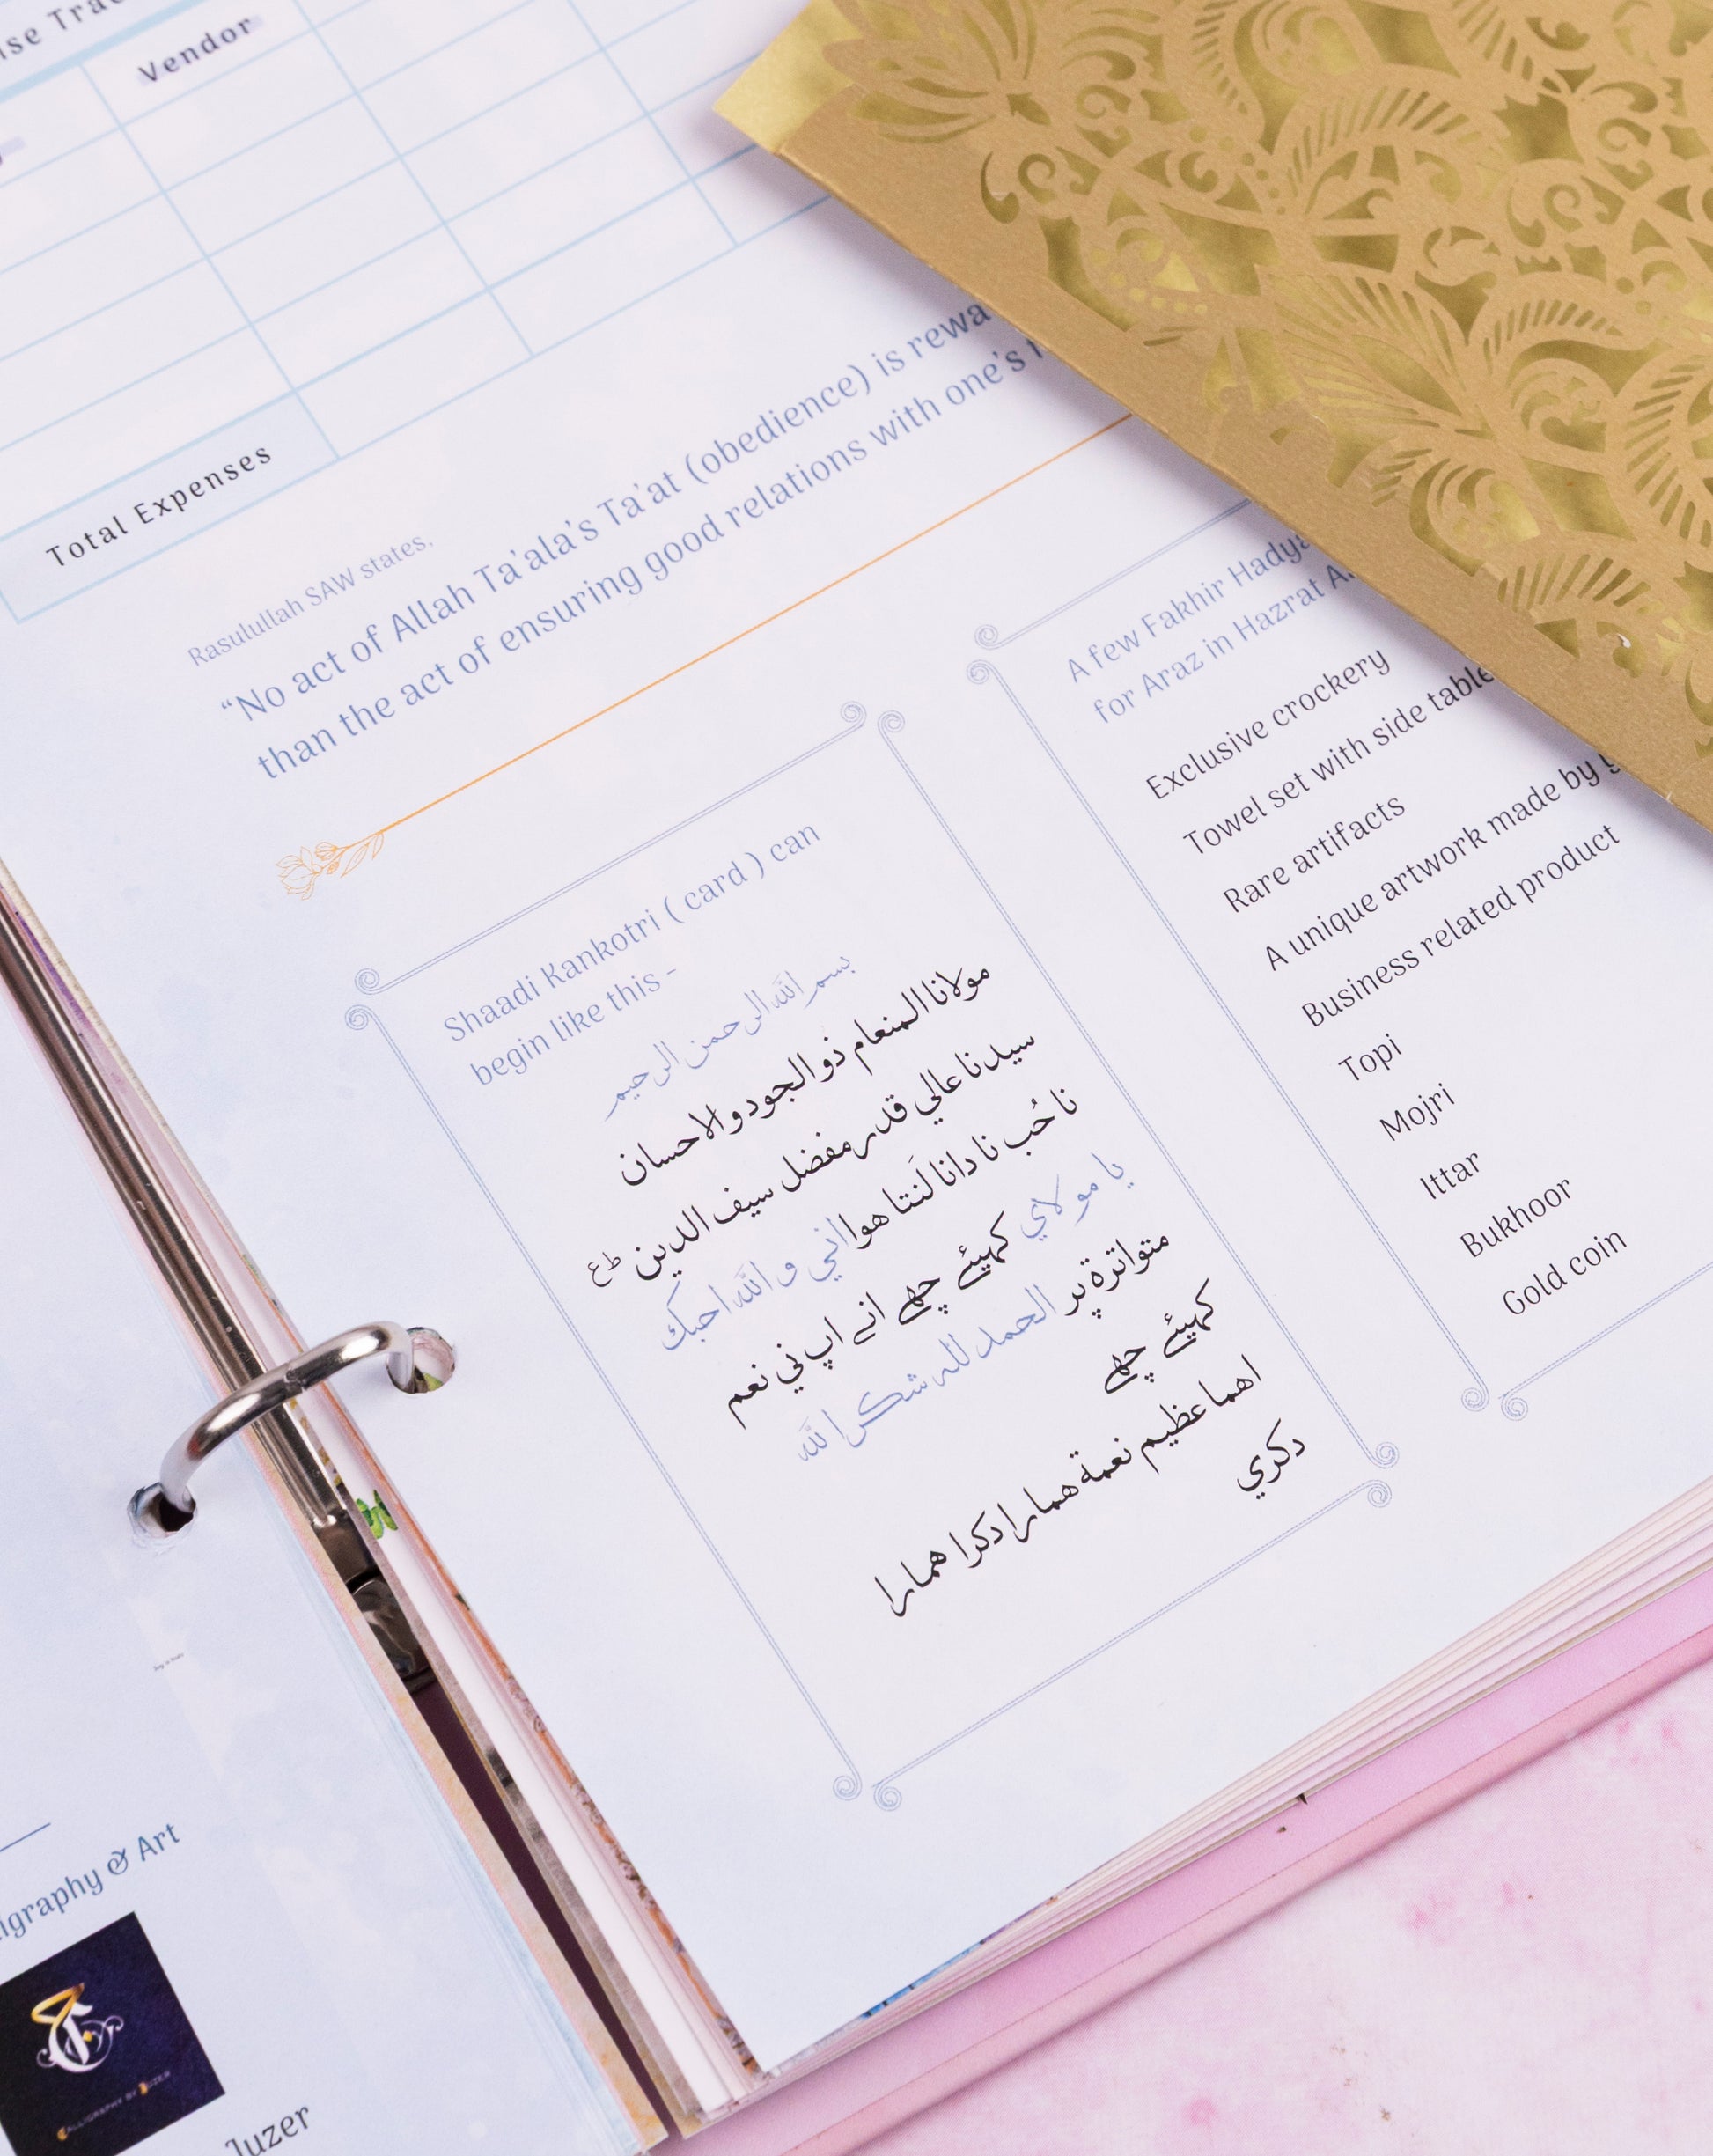 Vendor
Total Expenses
Rasulullah SAW states,
“No act of Allah Ta'ala's Ta'at (obedience) is
than the act of ensuring good relations with one's
Shaadi Kankotri ( card ) can
begin like this -
بسم الله الرحمن الرحيم
مولانا المنعام ذو الجود و الاحسان
سيدنا عالي قدر مفضل سيف الدين ط ع
نا حُب نا دانا لَنتا هوا اني و الله احبك
يا مولاي كهيئے چھے انے اپ ني نعم
متواترة پر الحمد لله شكرا لله
كهيئے چھے
اهما عظيم نعمة همارا دكرا همارا
دكري
A few Fakhir
for Araz in Hazrat
Exclusive crockery
Towel set with side
Rare artifacts
A unique artwork made by
Business related product
Topi
Mojri
Ittar
Bukhoor
Gold coin
& Art
CALLIGRAPHY BY JUZER
Juzer